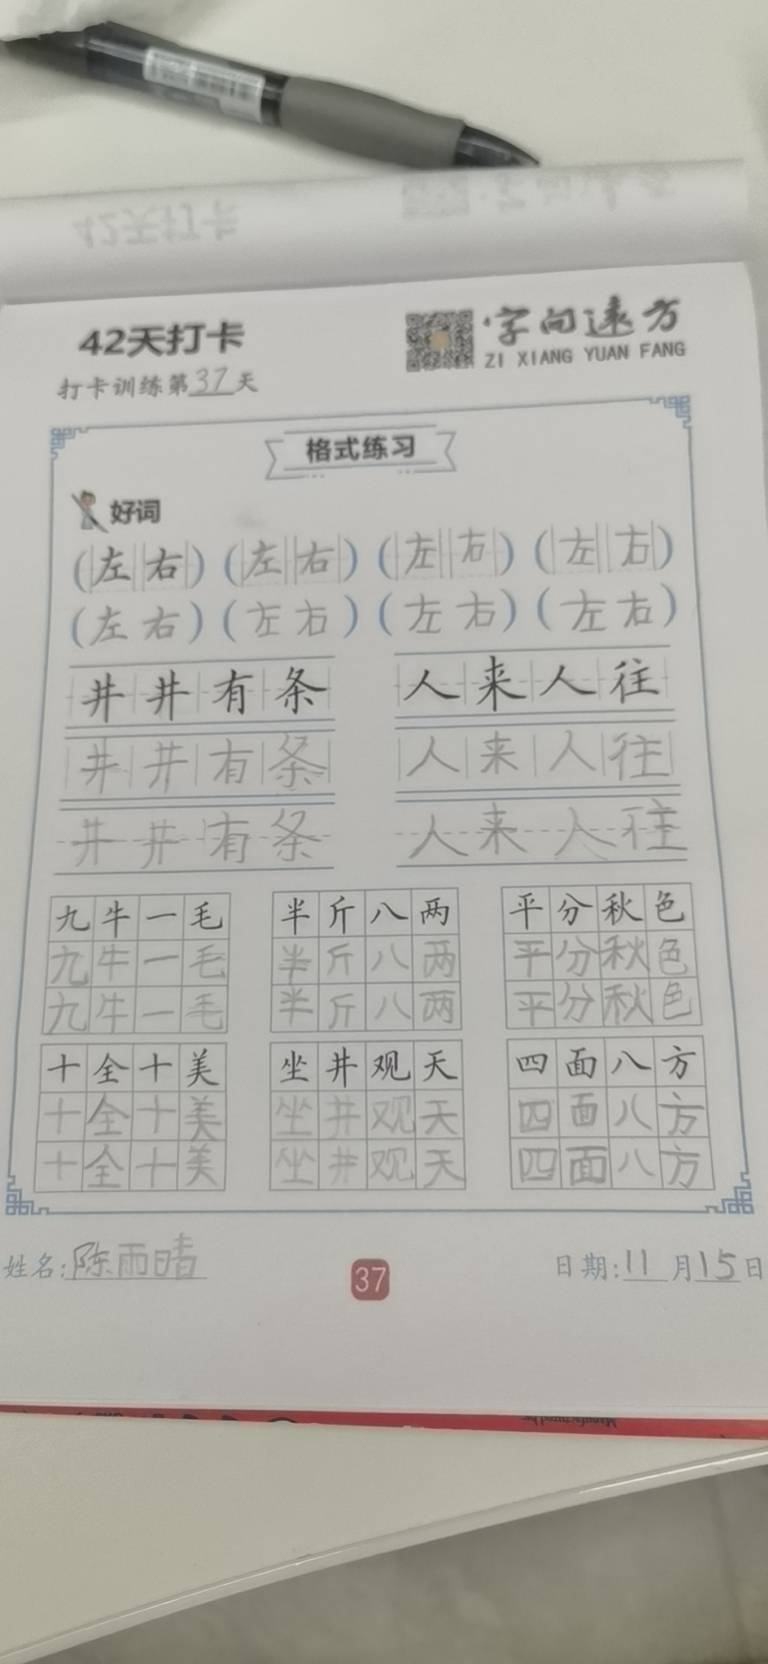 42天打卡
字向远方
ZI XIANG YUAN FANG
打卡训练第37天
格式练习
好词
(左右) (左右) (左右) (左右)
(左右) (左右) (左右) (左右)
井井有条 人来人往
井井有条 人来人往
井井有条 人来人往
九牛一毛 半斤八两 平分秋色
九牛一毛 半斤八两 平分秋色
九牛一毛 半斤八两 平分秋色
十全十美 坐井观天 四面八方
十全十美 坐井观天 四面八方
十全十美 坐井观天 四面八方
姓名:陈雨晴 37 日期:11月15日